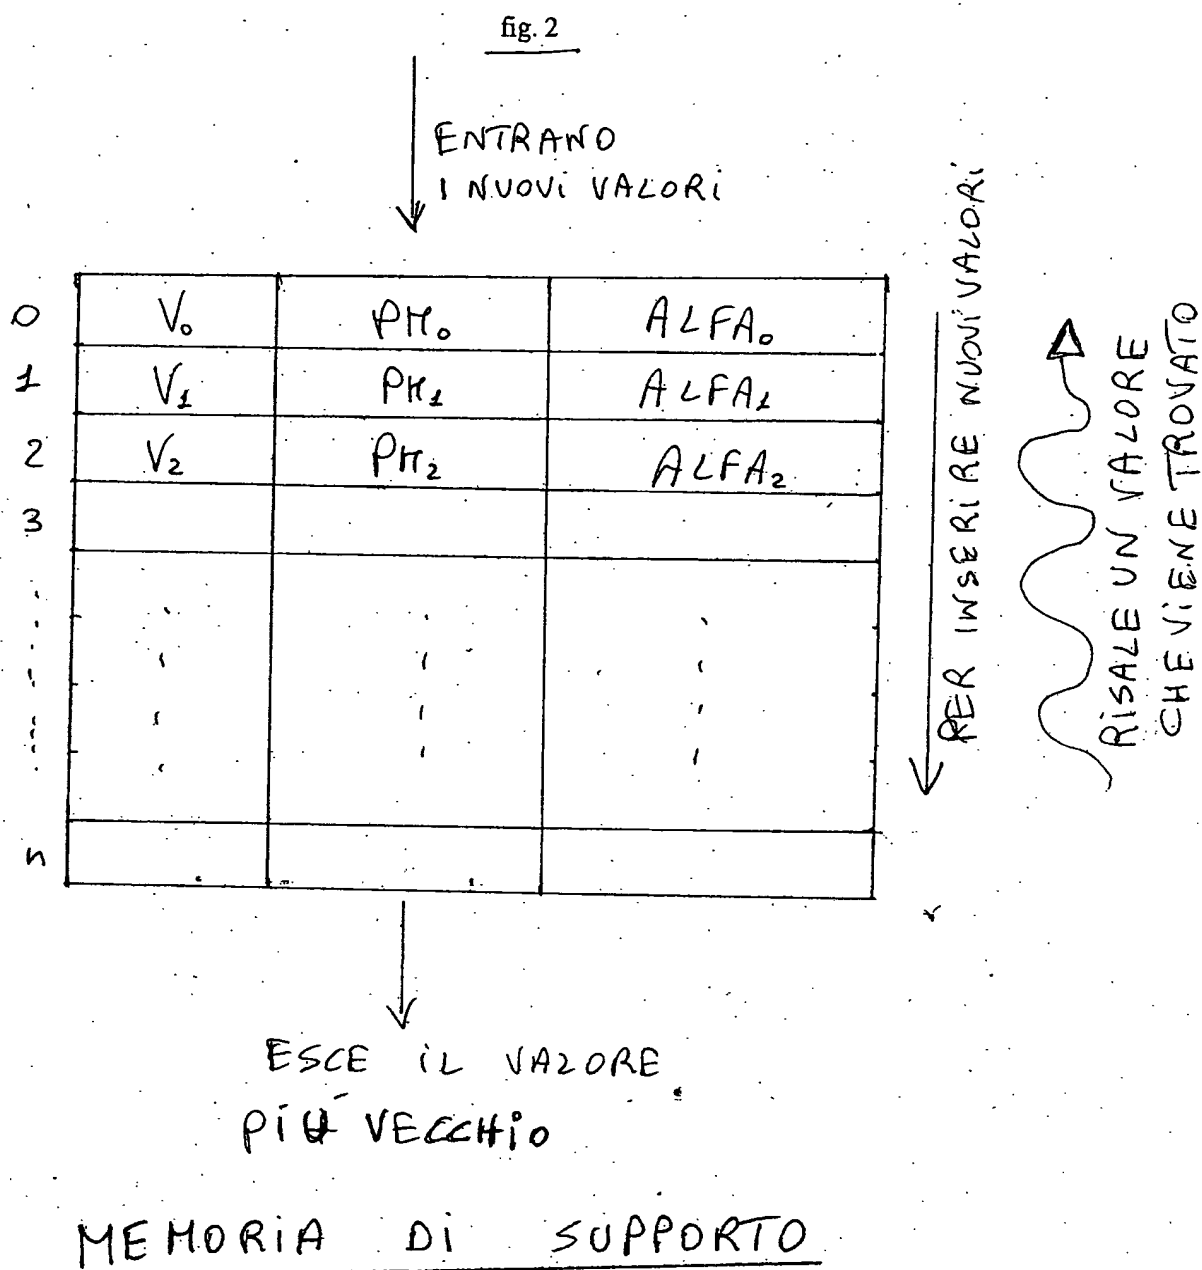 fig. 2
ENTRANO
I NUOVI VALORI
0 V₀ PM₀ ALFA₀
1 V₁ PM₁ ALFA₁
2 V₂ PM₂ ALFA₂
3
n
PER INSERIRE NUOVI VALORI
RISALE UN VALORE
CHE VIENE TROVATO
ESCE IL VALORE
PIÚ VECCHIO
MEMORIA DI SUPPORTO